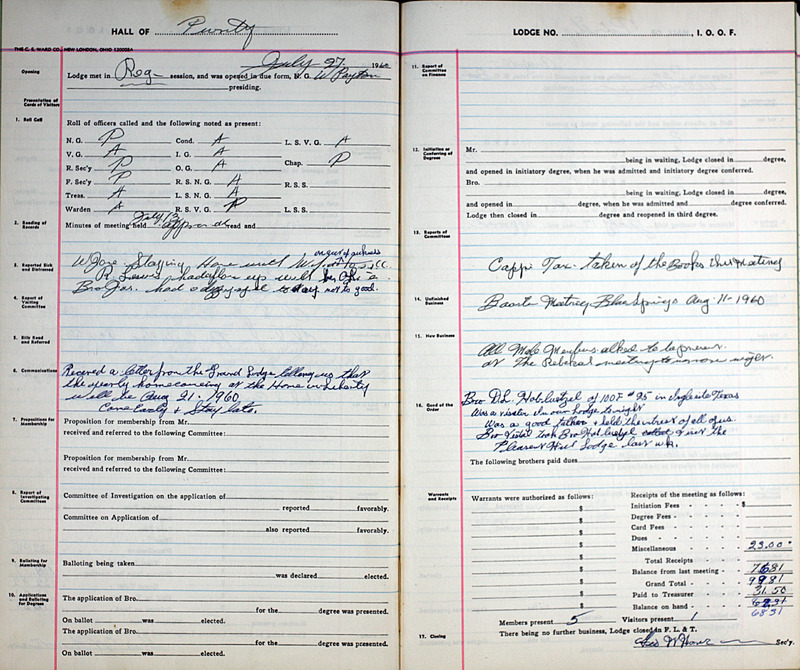 HALL OF Purity
THE C. E. WARD CO., NEW LONDON, OHIO
July 27, 1960
Opening
Lodge met in Reg session, and was opened in due form, N. G. W Payton
presiding.
Presentation of Cards of Visitors
1. Roll Call
Roll of officers called and the following noted as present:
N. G. P Cond. A L. S. V. G. A
V. G. A I. G. A Chap. P
R. Sec'y P O. G. A
F. Sec'y P R. S. N. G. A R. S. S.
Treas. A L. S. N. G. A
Warden A R. S. V. G. P L. S. S.
2. Reading of Records
Minutes of meeting held July 13 read and
3. Reported Sick and Distressed
Staying Home with on acct of sickness
R. Lewis had up with
Bro Jas. had not to good.
4. Report of Visiting Committee
5. Bills Read and Referred
6. Communications
Received a letter from the Grand Lodge telling us that
the yearly homecoming at the Home in Liberty
will be Aug 21. 1960
Come Early & Stay late.
7. Propositions for Membership
Proposition for membership from Mr.
received and referred to the following Committee:
Proposition for membership from Mr.
received and referred to the following Committee:
8. Report of Investigating Committees
Committee of Investigation on the application of
reported favorably.
Committee on Application of
also reported favorably.
9. Balloting for Membership
Balloting being taken
was declared elected.
10. Applications and Balloting for Degrees
The application of Bro.
for the degree was presented.
On ballot was elected.
The application of Bro.
for the degree was presented.
On ballot was elected.
LODGE NO. , I. O. O. F.
11. Report of Committee on Finance
12. Initiation or Conferring of Degrees
Mr.
being in waiting, Lodge closed in degree,
and opened in initiatory degree, when he was admitted and initiatory degree conferred.
Bro.
being in waiting, Lodge closed in degree,
and opened in degree, when he was admitted and degree conferred.
Lodge then closed in degree and reopened in third degree.
13. Reports of Committees
Capp Tax taken of the Books this Meeting
14. Unfinished Business
Booster Meeting Blue Springs Aug. 11-1960
15. New Business
All Male Members asked to be present
at the Rebekah meeting tomorrow night.
16. Good of the Order
Bro D.L. of IOOF # 25 in Ingleside Texas
Was a visitor in our Lodge tonight
Was a good talker & held the interest of all of us.
Bro took Bro visit the
Pleasant Hill Lodge last wk.
The following brothers paid dues
Warrants and Receipts
Warrants were authorized as follows:
$
$
$
$
$
$
$
$
$
Receipts of the meeting as follows:
Initiation Fees - - - - $
Degree Fees - - - - -
Card Fees - - - - -
Dues - - - - - -
Miscellaneous - - - - 23.00
Total Receipts - - -
Balance from last meeting - 7681
Grand Total - - - - 9981
Paid to Treasurer - - - 31.50
Balance on hand - - - 6831
Members present 5 Visitors present 1
17. Closing
There being no further business, Lodge closed in F. L. & T.
Sec'y.